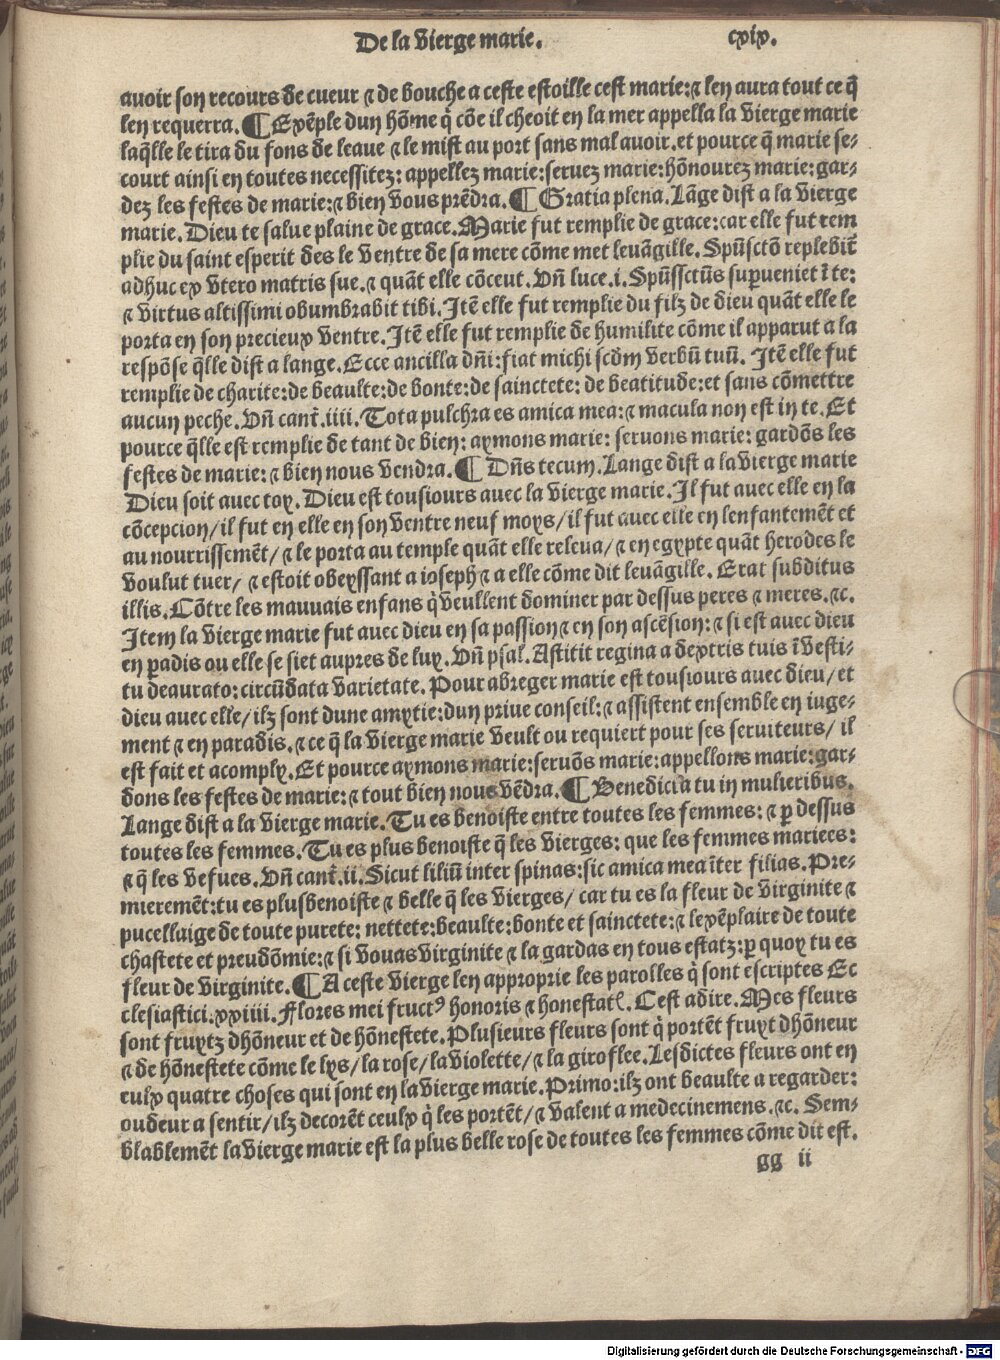 De la vierge marie. cxix.
auoir son recours de cueur ⁊ de bouche a ceste estoille cest marie:⁊ len aura tout ce q̃
len requerra. ¶ Exẽple dun hõme q̃ cõe il cheoit en la mer appella la vierge marie
laq̃lle le tira du fons de leaue ⁊ le mist au port sans mal auoir.et pource q̃ marie se-
court ainsi en toutes necessitez: appellez marie:seruez marie:hõnourez marie:gar-
dez les festes de marie:⁊ bien vous prẽdra. ¶ Gratia plena. Lãge dist a la vierge
marie. Dieu te salue plaine de grace. Marie fut remplie de grace:car elle fut rem
plie du saint esperit des le ventre de sa mere cõme met leuãgille. Spũsctõ replebit̃
adhuc ex vtero matris sue.⁊ quãt elle cõceut. Vñ luce.i. Spũssctũs supueniet ĩ te:
⁊ virtus altissimi obumbrabit tibi. Itẽ elle fut remplie du filz de dieu quãt elle le
porta en son precieux ventre. Itẽ elle fut remplie de humilite cõme il apparut a la
respõse q̃lle dist a lange. Ecce ancilla dñi:fiat michi scdm̃ verbũ tuũ. Itẽ elle fut
remplie de charite:de beaulte:de bonte:de sainctete: de beatitude:et sans cõmettre
aucun peche. Vñ cant̃.iiii. Tota pulchra es amica mea:⁊ macula non est in te. Et
pource q̃lle est remplie de tant de bien: aymons marie: seruons marie: gardõs les
festes de marie:⁊ bien nous vendra. ¶ Dñs tecum. Lange dist a la vierge marie
Dieu soit auec toy. Dieu est tousiours auec la vierge marie. Il fut auec elle en la
cõcepcion/il fut en elle en son ventre neuf moys/il fut auec elle en lenfantemẽt et
au nourrissemẽt/⁊ le porta au temple quãt elle releua/⁊ en egypte quãt herodes le
voulut tuer/⁊ estoit obeyssant a ioseph ⁊ a elle cõme dit leuãgille. Erat subditus
illis. Cõtre les mauuais enfans q̃ veullent dominer par dessus peres ⁊ meres.⁊c.
Item la vierge marie fut auec dieu en sa passion ⁊ en son ascẽsion:⁊ si est auec dieu
en padis ou elle se siet aupres de luy. Vñ psal. Astitit regina a dextris tuis ĩ vesti-
tu deaurato:circũdata varietate. Pour abreger marie est tousiours auec dieu/et
dieu auec elle/ilz sont dune amytie:dun priue conseil:⁊ assistent ensemble en iuge-
ment ⁊ en paradis.⁊ ce q̃ la vierge marie veult ou requiert pour ses seruiteurs/il
est fait et acomply. Et pource aymons marie:seruõs marie:appellons marie:gar-
dons les festes de marie:⁊ tout bien nous vẽdra. ¶ Benedicta tu in mulieribus.
Lange dist a la vierge marie. Tu es benoiste entre toutes les femmes:⁊ p dessus
toutes les femmes. Tu es plus benoiste q̃ les vierges: que les femmes mariees:
⁊ q̃ les vefues. Vñ cant̃.ii. Sicut liliũ inter spinas:sic amica mea ĩter filias. Pre-
mieremẽt:tu es plusbenoiste ⁊ belle q̃ les vierges/car tu es la fleur de virginite ⁊
pucellaige de toute purete: nettete:beaulte:bonte et sainctete:⁊ lexẽplaire de toute
chastete et preudõmie:⁊ si vouas virginite ⁊ la gardas en tous estatz:p quoy tu es
fleur de virginite. ¶ A ceste vierge len approprie les parolles q̃ sont escriptes Ec
clesiastici.xxiiii. Flores mei fructꝰ honoris ⁊ honestat̃. Cest adire. Mes fleurs
sont fruytz dhõneur et de hõnestete. Plusieurs fleurs sont q̃ portẽt fruyt dhõneur
⁊ de hõnestete cõme le lys/la rose/la violette/⁊ la giroflee. Lesdictes fleurs ont en
eulx quatre choses qui sont en la vierge marie. Primo:ilz ont beaulte a regarder:
oudeur a sentir/ilz decorẽt ceulx q̃ les portẽt/⁊ valent a medecinemens.⁊c. Sem-
blablemẽt la vierge marie est la plus belle rose de toutes les femmes cõme dit est.
gg ii
Digitalisierung gefördert durch die Deutsche Forschungsgemeinschaft - DFG